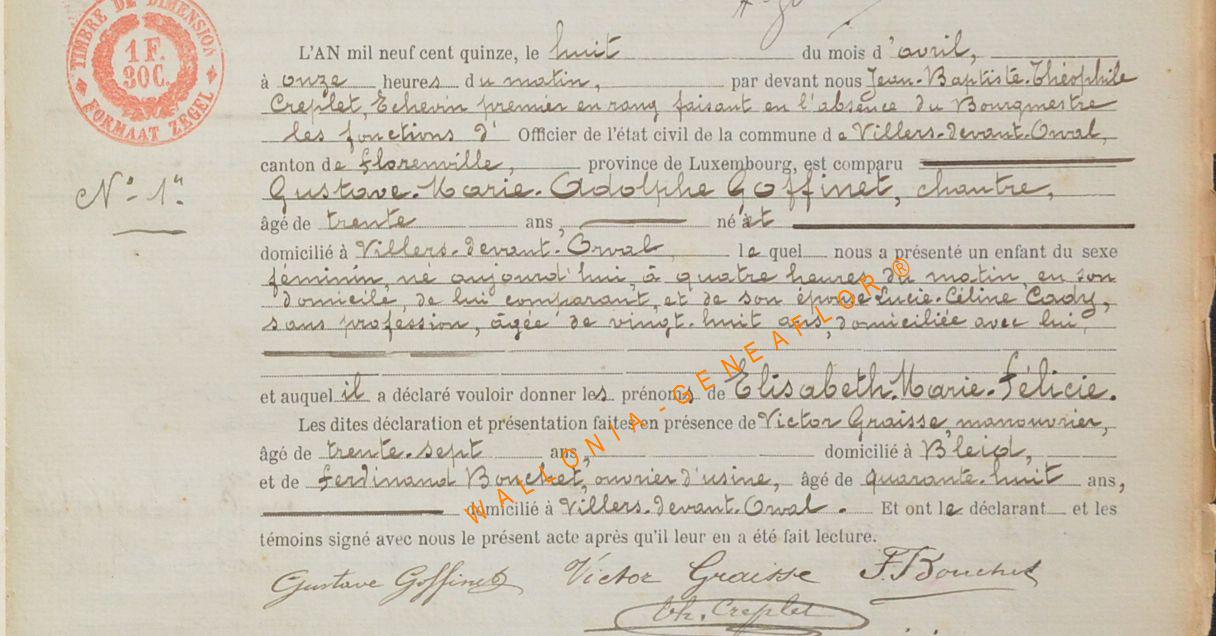 TIMBRE DE DIMENSION
1 F. 30C.
FORMAAT ZEGEL
L'AN mil neuf cent quinze, le huit du mois d'avril,
à onze heures du matin, par devant nous Jean-Baptiste-Théophile
Creplet, Echevin premier en rang faisant en l'absence du Bourgmestre
les fonctions d' Officier de l'état civil de la commune de Villers-devant-Orval,
canton de Florenville, province de Luxembourg, est comparu
N° 1er
Gustave-Marie-Adolphe Goffinet, chantre,
âgé de trente ans, né et
domicilié à Villers-devant-Orval lequel nous a présenté un enfant du sexe
féminin, né aujourd'hui, à quatre heures du matin, en son
domicile, de lui comparant, et de son épouse Lucie-Céline Cady,
sans profession, âgée de vingt-huit ans, domiciliée avec lui,
et auquel il a déclaré vouloir donner les prénoms de Elisabeth-Marie-Félicie.
Les dites déclaration et présentation faites en présence de Victor Graisse, manouvrier,
âgé de trente-sept ans, domicilié à Bleid,
et de Ferdinand Bouchet, ouvrier d'usine, âgé de quarante-huit ans,
domicilié à Villers-devant-Orval. Et ont le déclarant et les
témoins signé avec nous le présent acte après qu'il leur en a été fait lecture.
Gustave Goffinet Victor Graisse F. Bouchet
Th. Creplet
WALLONIA-GENEAFLOR®